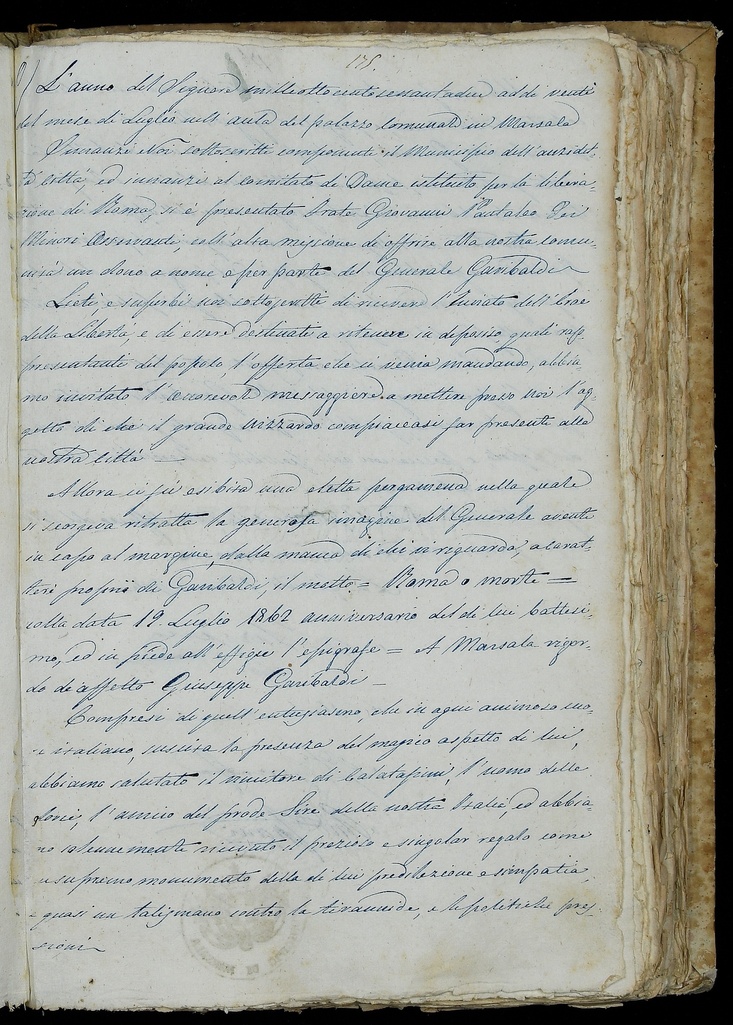 175.
L'anno del Signore mille ottocentosessantadue addì venti
del mese di Luglio nell'aula del palazzo Comunale in Marsala
Innanzi Noi sottoscritti componenti il Municipio dell'anzidet-
ta Città, ed innanzi al comitato di Dame istituito per la libera-
zione di Roma, si è presentato Frate Giovanni Pantaleo Dei
Minori Osservanti, coll'alta missione di offrire alla nostra comu-
nità un dono a nome e per parte del Generale Garibaldi
Lieti, e superbi noi sottoscritti di ricevere l'Inviato dell'Eroe
della Libertà, e di essere destinati a ritenere in deposito, quali rap-
presentanti del popolo, l'offerta che ci venia mandando, abbia-
mo invitato l'onorevole messaggiere a mettere presso noi l'og-
getto di che il grande Nizzardo compiaceasi far presente alla
nostra Città =
Allora ci fù esibita una eletta pergamena nella quale
si scorgeva ritratta la generosa imagine del Generale avente
in capo al margine, dalla manca di chi in riguarda, a carat-
teri proprii di Garibaldi, il motto = Roma o morte =
colla data 19. Luglio 1862 anniversario del di lui battesi-
mo, ed in piede all'effigie l'epigrafe = A Marsala ricor-
do di affetto Giuseppe Garibaldi =
Compresi di quell'entusiasmo, che in ogni animoso cuo-
re italiano, suscita la presenza del magico aspetto di lui,
abbiamo salutato il vincitore di Calatafimi, l'uomo delle
glorie, l'amico del prode Sire della nostra Italia, ed abbia-
mo solennemente ricevuto il prezioso e singolar regalo come
un supremo monumento della di lui predilezione e simpatia,
e quasi un talismano contro la tirannide, e le politiche pres-
sioni